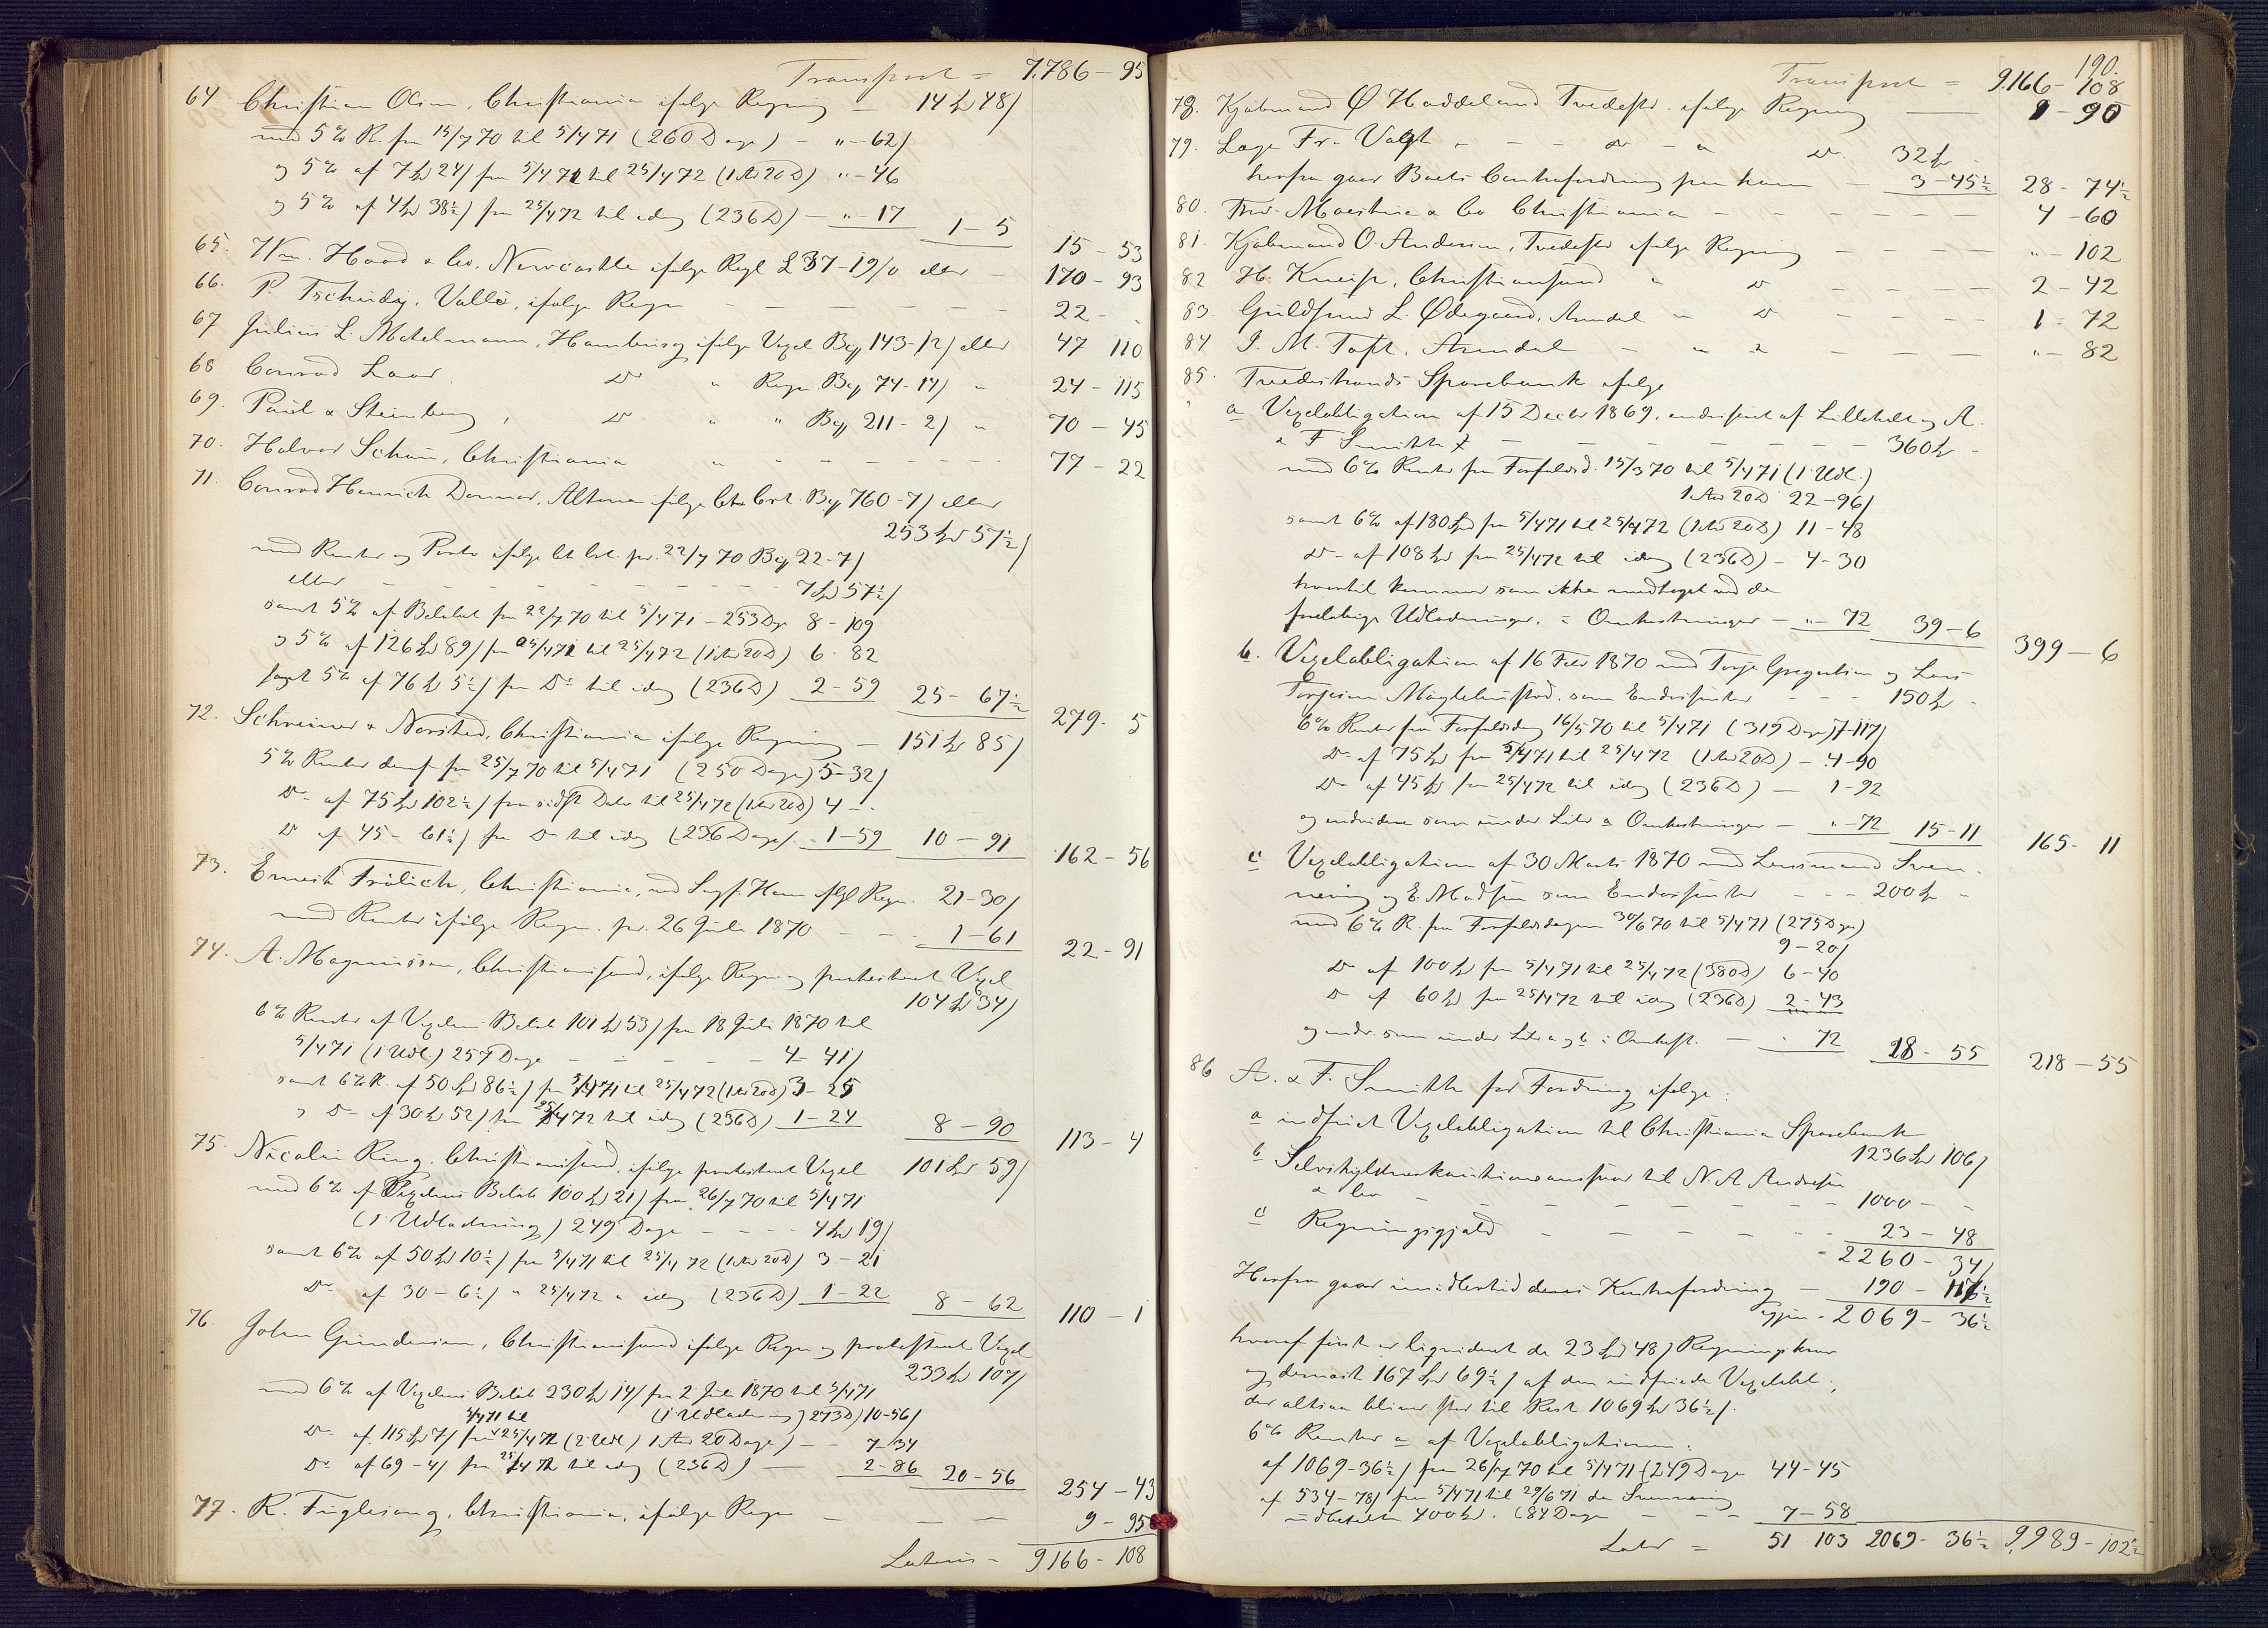 Transport = 7.786 - 95
64 Christian Olsen, Christiania ifølge Regning — 14 Spd 48 ſ
med 5% R. fra 15/7 70 til 5/4 71 (260 Dage) - " - 62 ſ
og 5% af 7 Spd 24 ſ fra 5/4 71 til 25/4 72 (1 Aar 20 D) " - 46
og 5% af 4 Spd 38½ ſ fra 25/4 72 til idag (236 D) - " - 17 1 5
15 - 53
65. Wm. Hood & Co. Newcastle ifølge Regn £ 37-19/0 eller - 170 - 93
66. P. Tschudy, Vallø, ifølge Regn — 22 -
67 Julius L. Metelmann, Hamburg ifølge Vexel Bco 143-12 ſ eller 47 110
68 Conrad Laar, Do " Regn Bco 74-14 ſ " 24 - 115
69. Paul & Steinberg, Do " " Bco 211-2 ſ " 70 - 45
70. Halvor Schou, Christiania " - - - 77 - 22
71. Conrad Henrich Donner, Altona ifølge Cto Crt. Bco 760-7 ſ eller
253 Spd 57½ ſ
med Renter og Porto ifølge Ct Crt. pr. 22/7 70 Bco 22-7 ſ
eller - - - - - 7 Spd 57½ ſ
samt 5% af Beløbet fra 22/7 70 til 5/4 71 - 253 Dge 8 - 109
og 5% af 126 Spd 89 ſ fra 5/4 71 til 25/4 72 (1 Aar 20 D) 6 - 82
samt 5% af 76 Spd 5½ ſ fra Do til idag (236 D) 2 - 59 25 - 67½
279 - 5
72. Schreiner & Norsted, Christiania ifølge Regning — 151 Spd 85 ſ
5% Renter deraf fra 25/7 70 til 5/4 71 (250 Dage) 5-32 ſ
Do af 75 Spd 102½ ſ fra sidste Dato til 25/4 72 (1 Aar 20 D) 4 - -
Do af 45 - 61½ ſ fra Do til idag (236 Dage) 1-59 10 - 91
162 - 56
73. Ernest Frølich, Christiania, ved Sagf. Hann ifølge Regn. 21-30 ſ
med Renter ifølge Regn. pr. 26 Juli 1870 - - 1-61
22 - 91
74. A. Magnussen, Christianssand, ifølge Regn og protesteret Vexel
104 Spd 34 ſ
6% Renter af Vexelens Beløb 101 Spd 53 ſ fra 18 Juli 1870 til
5/4 71 (1 Udl.) 257 Dage - - - - - 4 - 41 ſ
samt 6% R. af 50 Spd 86½ ſ fra 5/4 71 til 25/4 72 (1 Aar 20 D) 3 - 25
og Do af 30 Spd 52 ſ fra 25/4 72 til idag (236 D) 1 - 24 8 - 90
113 - 4
75. Nicolai Ring, Christianssand, ifølge protesteret Vexel 101 Spd 59 ſ
med 6% af Vexelens Beløb 100 Spd 21 ſ fra 26/7 70 til 5/4 71
(1 Udlodning) 249 Dage - - - 4 Spd 19 ſ
samt 6% af 50 Spd 10½ ſ fra 5/4 71 til 25/4 72 (1 Aar 20 D) 3 - 21
Do af 30 - 6½ ſ " 25/4 72 " idag (236 D) 1 - 22 8 - 62
110 - 1
76. John Gundersen, Christianssand ifølge Regn og protesteret Vexel
233 Spd 107 ſ
med 6% af Vexelens Beløb 230 Spd 14 ſ fra 2 Juli 1870 til 5/4 71
(1 Udlodning) 273 D) 10-56 ſ
5/4 71 til
Do af 115 Spd 7 ſ fra 25/4 72 (2 Udl) 1 Aar 20 Dage) - - 7 34
Do af 69 - 4 ſ fra 25/4 72 til idag (236 D) - 2-86 20 - 56
254 - 43
77. R. Fuglesang, Christiania, ifølge Regn - - - 9 - 95
Lateris - 9166 - 108
190.
Transport = 9166 - 108
78. Kjøbmand Ø Haddeland Tvedestr. ifølge Regning — 9 - 90
79. Læge Fr. Vogt - - - Do - " Do 32 Spd
herfra gaar Boets Contrafordring paa ham - 3-45½ 28 - 74½
80. Thr. Moestue & Co Christiania - - - - - 4 - 60
81. Kjøbmand O. Andersen, Tvedestr ifølge Regning - - - - " - 102
82 H. Kneip, Christianssand " Do - - - - 2 - 42
83. Guldsmed L. Ødegaard, Arendal " Do - - - - 1 - 72
84 I. M. Toft, Arendal - " " - - - " - 82
85. Tvedestrands Sparebank ifølge
a Vexelobligation af 15 Decbr 1869, endosseret af Lilleholt og A.
& F Smith - - - - - - - 360 Spd -
med 6% Renter fra Forfaldsd. 15/3 70 til 5/4 71 (1 Udl.)
1 Aar 20 D 22-96 ſ
samt 6% af 180 Spd fra 5/4 71 til 25/4 72 (1 Aar 20 D) 11-48
Do - af 108 Spd fra 25/4 72 til idag (236 D) - 4-30
hvortil kommer som ikke medtaget ved de
foreløbige Udlodninger, : Omkostninger - " - 72 39 - 6
399 - 6
b. Vexelobligation af 16 Febr 1870 med Torje Gregersen og Lars
Torjesen Møglebustad som Endossenter - - 150 Spd -
6% Renter fra Forfaldsdag 16/5 70 til 5/4 71 (319 Dage) 7-117 ſ
Do - af 75 Spd fra 5/4 71 til 25/4 72 (1 Aar 20 D) - 4-90
Do af 45 Spd fra 25/4 72 til idag (236 D) - 1-92
og endvidere som under Litr a Omkostninger - " - 72 15-11
165 - 11
c Vexelobligation af 30 Marts 1870 med Lensmand Sven-
nevig og E. Madsen som Endossenter - - - 200 Spd -
med 6% R. fra Forfaldsdagen 30/6 70 til 5/4 71 (275 Dge)
9-20 ſ
Do af 100 Spd fra 5/4 71 til 25/4 72 (380 D) 6-40
Do af 60 Spd fra 25/4 72 til idag (236 D) 2-43
og endv. som under Litr a og b : Omkost. - - 72 18 - 55
218 - 55
86 A. & F. Smith for Fordring ifølge:
a indfriet Vexelobligation til Christiania Sparebank
1236 Spd 106 ſ
b Selvskyldnerkautionsansvar til N. A Andresen
& Co - - - - - - - 1000 - -
c Regningsgjæld - - - - - - 23 - 48
- 2260 - 34 ſ
Herfra gaar imidlertid deres Kontrafordring - 190 - 117½
igjen - 2069 - 36½
hvoraf først er liqvideret de 23 Spd 48 ſ Regningskrav
og dernæst 167 Spd 69½ ſ af den indfriede Vexelobl.,
der altsaa bliver stor til Rest 1069 Spd 36½ ſ.
6% Renter a af Vexelobligationen:
af 1069-36½ ſ fra 26/7 70 til 5/4 71 (249 Dage 44-45
af 534-78 ſ fra 5/4 71 til 29/6 71 da Svennevig
indbetalte 400 Spd. (84 Dage - - - 7-58
Later = 51 103 2069 - 36½ 9,989 - 102½